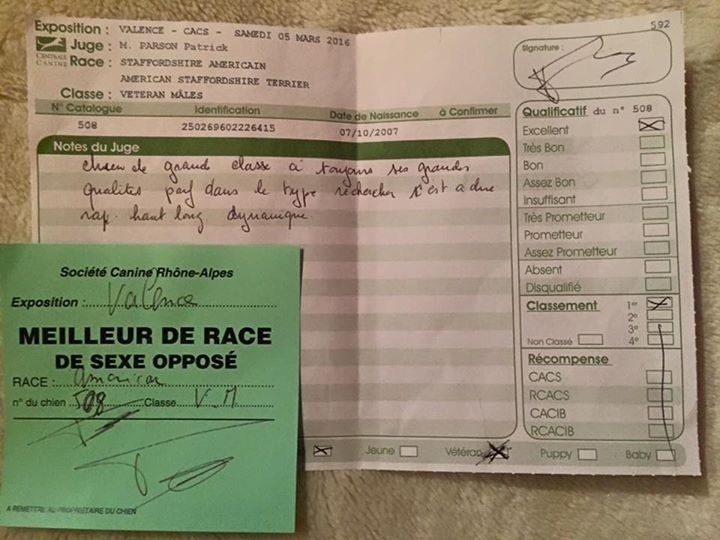 592
Exposition : VALENCE - CACS - SAMEDI 05 MARS 2016
Juge : M. PARSON Patrick
CENTRALE CANINE
Race : STAFFORDSHIRE AMERICAIN
AMERICAN STAFFORDSHIRE TERRIER
Classe : VETERAN MÂLES
Signature :
N° Catalogue Identification Date de Naissance à Confirmer
508 250269602226415 07/10/2007
Notes du Juge
chien de grande classe a toujours ses grandes
qualités parf dans le type rechercher c'est a dire
rap. haut long dynamique.
Qualificatif du n° 508
Excellent
Très Bon
Bon
Assez Bon
Insuffisant
Très Prometteur
Prometteur
Assez Prometteur
Absent
Disqualifié
Classement 1er
2e
3e
Non Classé 4e
Récompense
CACS
RCACS
CACIB
RCACIB
Jeune Vétéran Puppy Baby
Société Canine Rhône-Alpes
Exposition : Valence
MEILLEUR DE RACE
DE SEXE OPPOSÉ
RACE : American
n° du chien 508 Classe V.M
A REMETTRE AU PROPRIÉTAIRE DU CHIEN